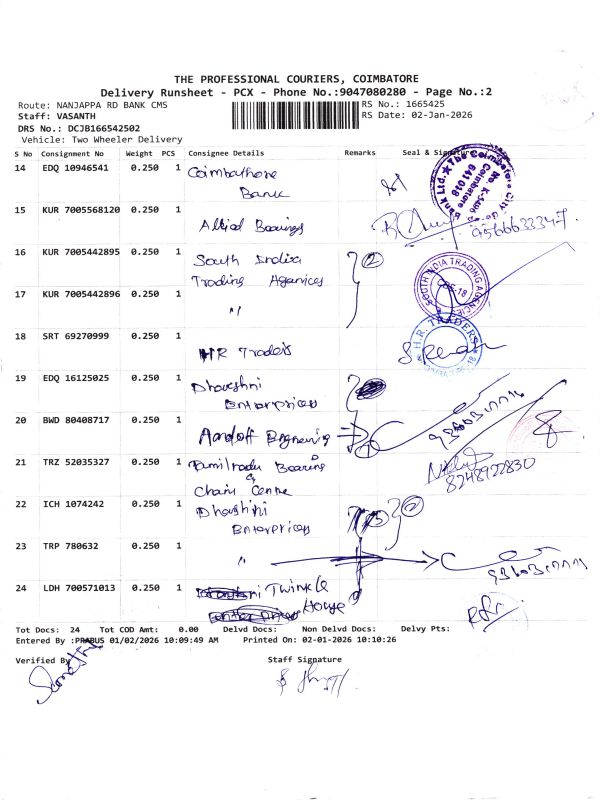 THE PROFESSIONAL COURIERS, COIMBATORE
Delivery Runsheet - PCX - Phone No.:9047080280 - Page No.:2
Route: NANJAPPA RD BANK CMS
RS No.: 1665425
Staff: VASANTH
RS Date: 02-Jan-2026
DRS No.: DCJB166542502
Vehicle: Two Wheeler Delivery
S No Consignment No Weight PCS Consignee Details Remarks Seal & Signature
14 EDQ 10946541 0.250 1 Coimbathore
Bank
Bank Ltd. ★ The Coimbatore City
Coimbatore
641018
15 KUR 7005568120 0.250 1
Allied Bearings
9566633347
16 KUR 7005442895 0.250 1 South India
Trading Agencices
2
SOUTH INDIA TRADING AGENCIE
CBE-18
17 KUR 7005442896 0.250 1
"
18 SRT 69270999 0.250 1
HR Traders
H.R. TRADERS
19 EDQ 16125025 0.250 1 Dharshni
Enterprices
20 BWD 80408717 0.250 1
Engineering
21 TRZ 52035327 0.250 1 Tamilnadu Bearing
&
Chain Centre
8248922830
22 ICH 1074242 0.250 1 Dharshini
Enterprices
2
23 TRP 780632 0.250 1
"
24 LDH 700571013 0.250 1 Twinkle
House
Tot Docs: 24 Tot COD Amt: 0.00 Delvd Docs: Non Delvd Docs: Delvy Pts:
Entered By :PRABUS 01/02/2026 10:09:49 AM Printed On: 02-01-2026 10:10:26
Verified By
Staff Signature